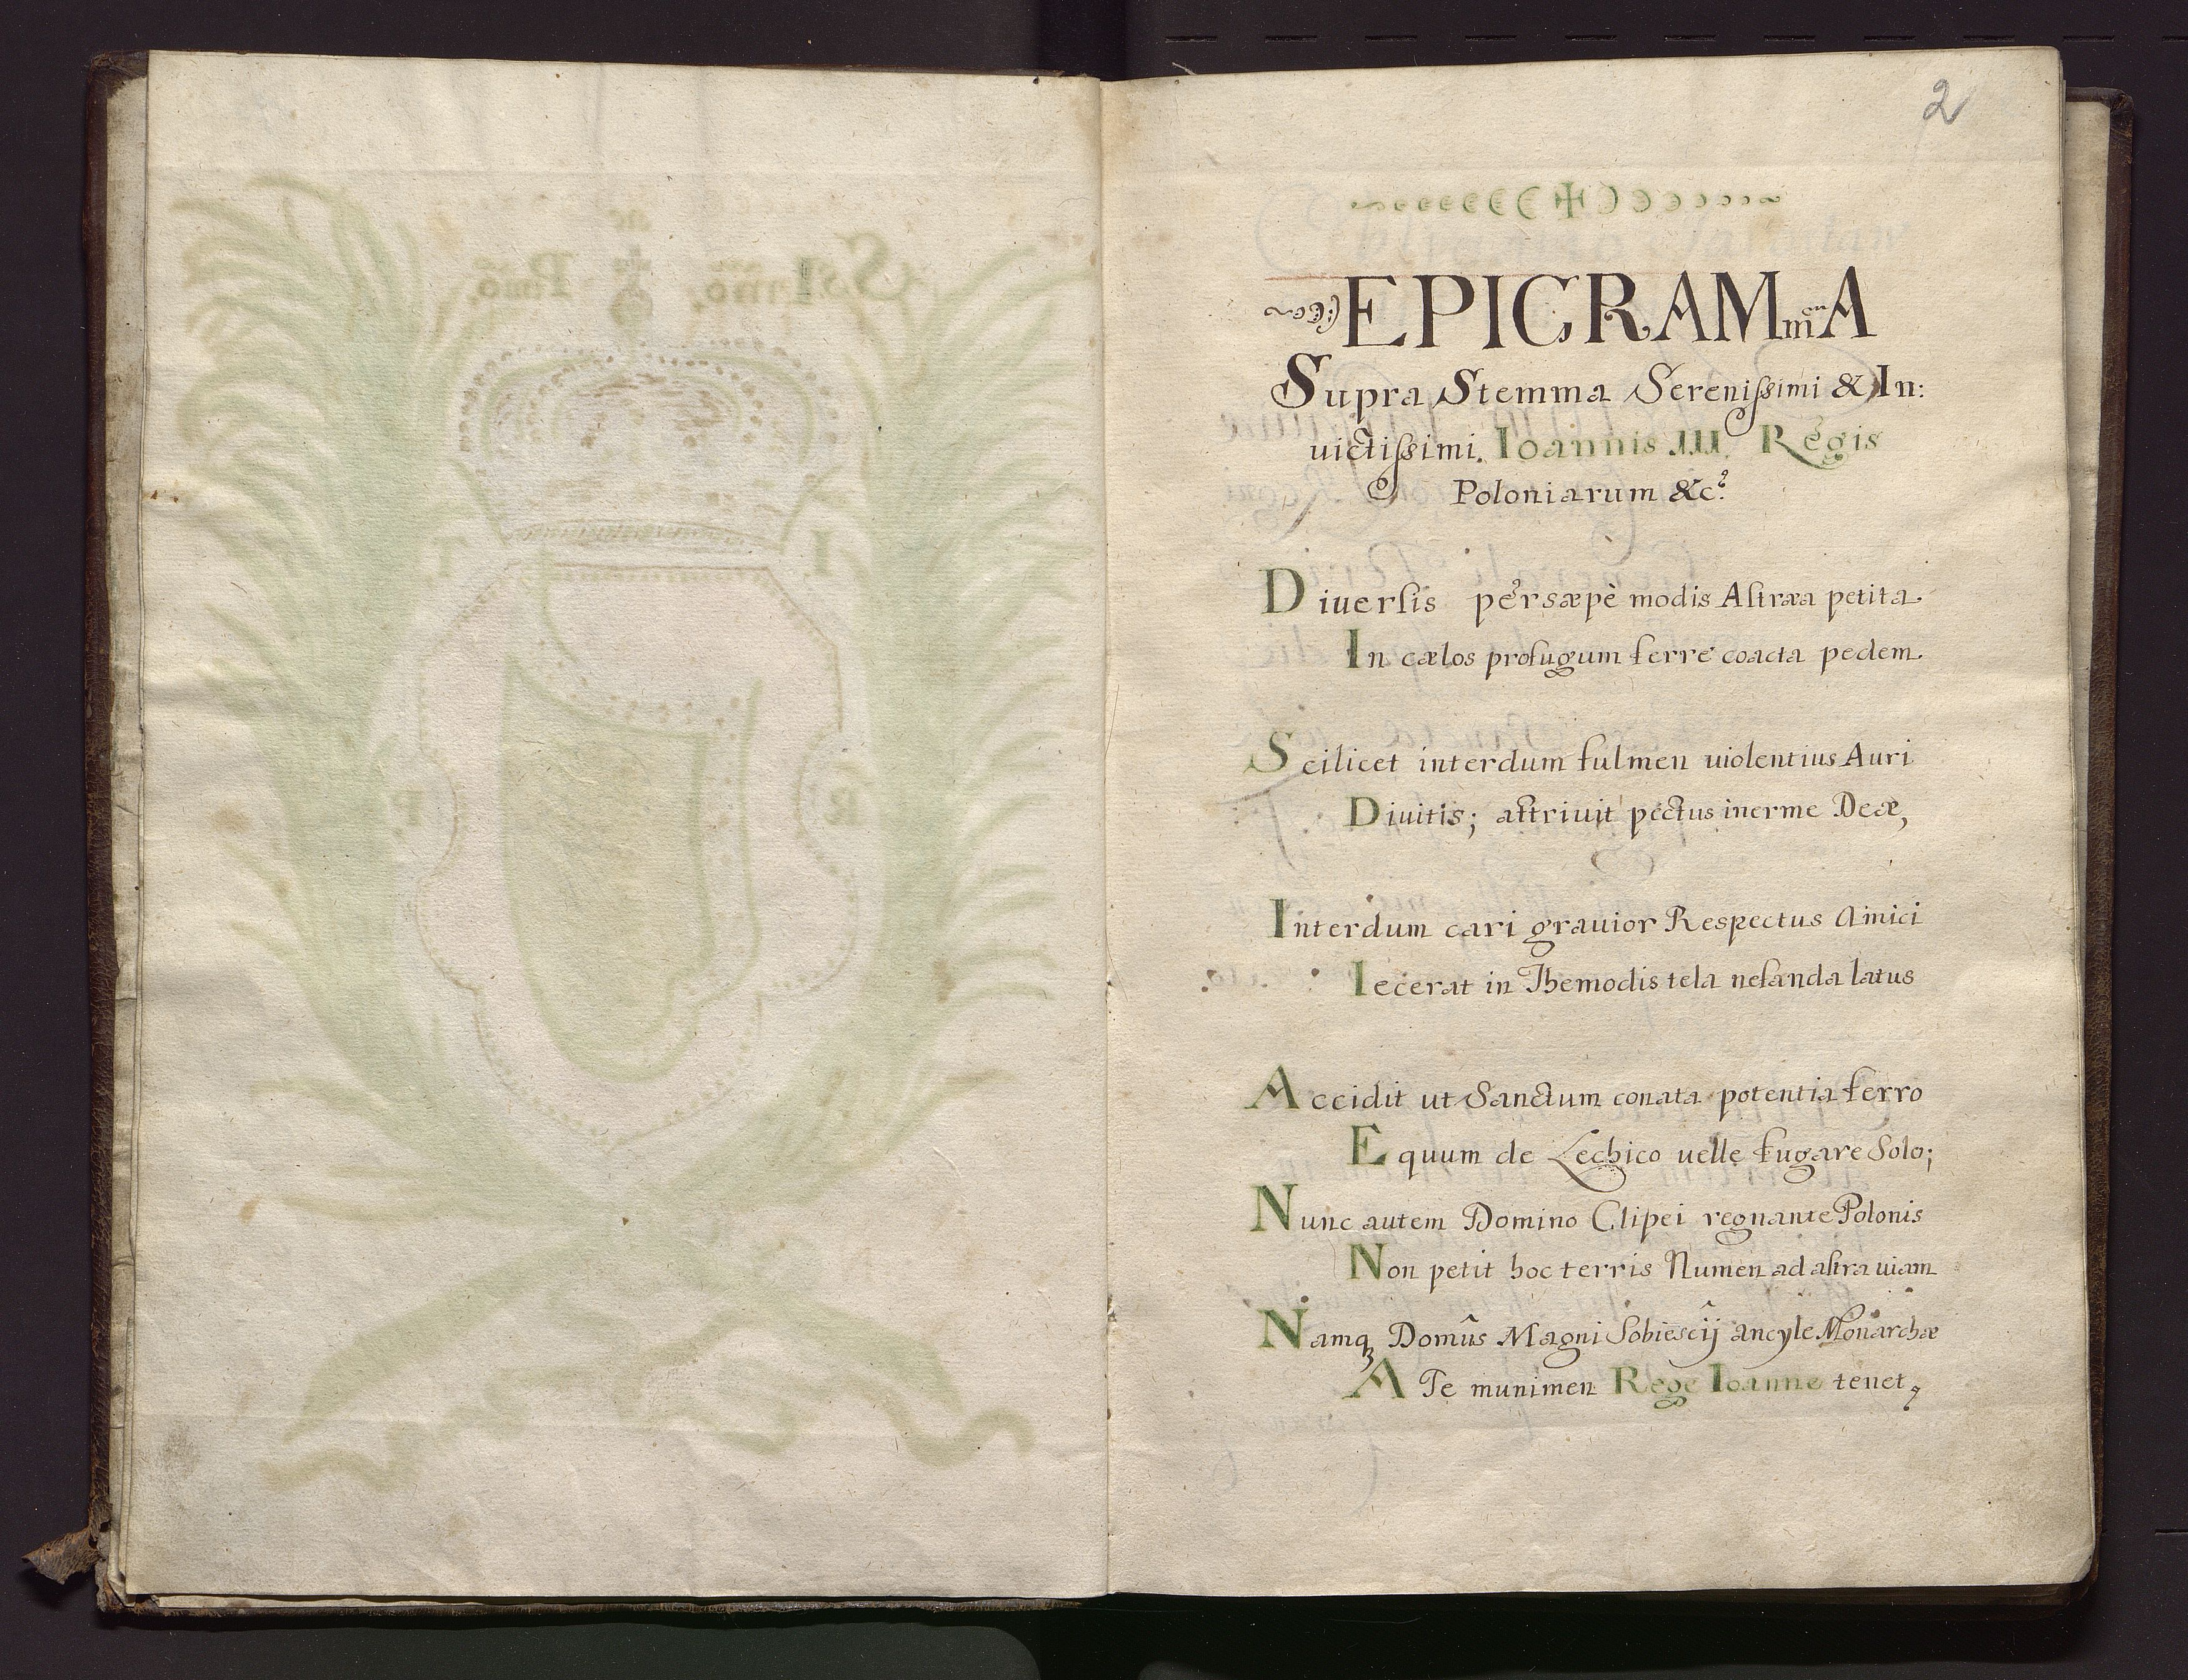 2
EPIGRAMmA
Supra Stemma Serenißimi & In:
uictißimi. Ioannis III. Regis
Poloniarum &c.
Diuersis persæpè modis Astræa petita
In cælos profugum ferre coacta pedem.
Scilicet interdum fulmen uiolentius Auri
Diuitis; attriuit pectus inerme Deæ,
Interdum cari grauior Respectus Amici
Iecerat in Themodis tela nefanda latus
Accidit ut Sanctum conata potentia ferro
Equum de Lechico uelle fugare Solo;
Nunc autem Domino Clipei regnante Polonis
Non petit hoc terris Numen ad astra uiam
Namq3 Domûs Magni Sobiescij ancyle Monarchæ
A Te munimen Rege Ioanne tenet,